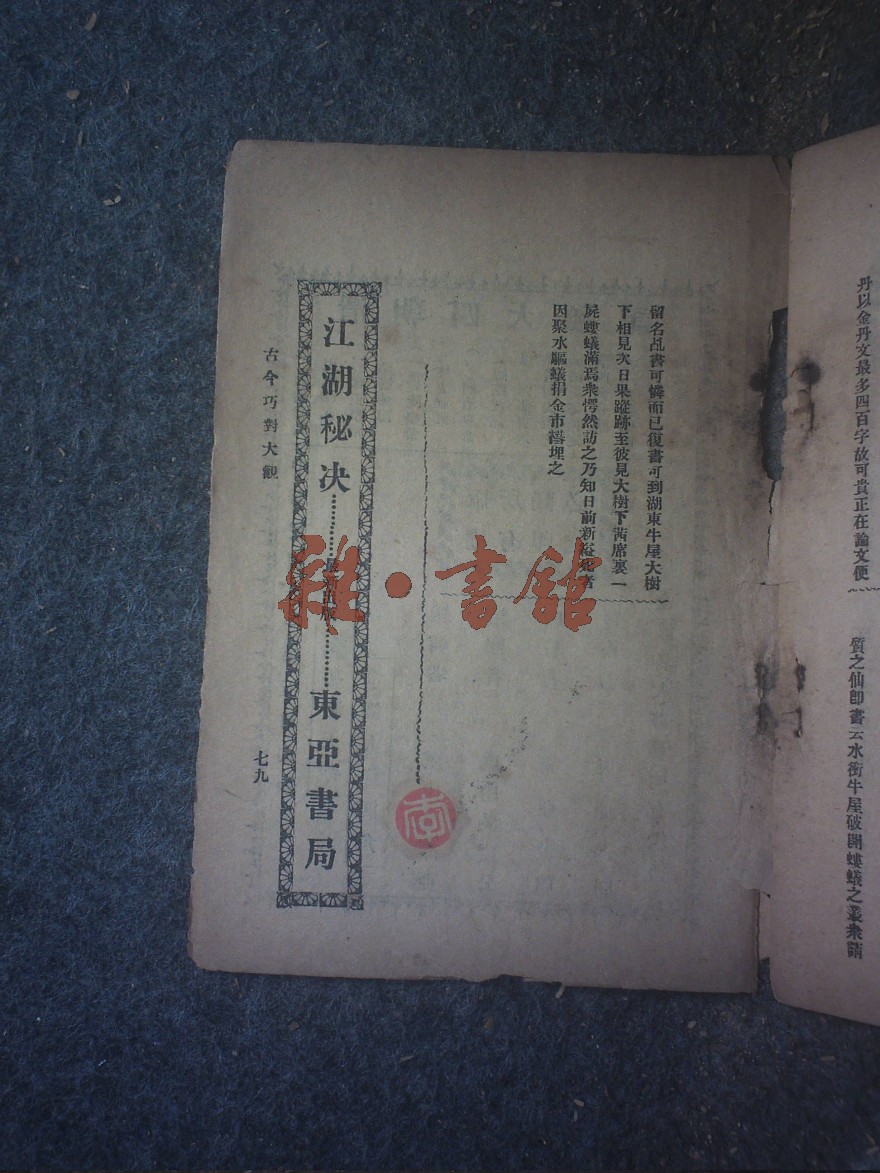 丹以金丹文最多四百字故可貴正在論文便
質之仙卽書云水銜牛屋破開螻蟻之叢衆請
留名乩書可憐而已復書可到湖東牛屋大樹
下相見次日果蹤跡至彼見大樹下茜席裹一
屍螻蟻滿焉衆愕然訪之乃知日前新
因聚水驅蟻捐金市槥埋之
江湖秘决 東亞書局
古今巧對大觀
七九
雜·書館
李